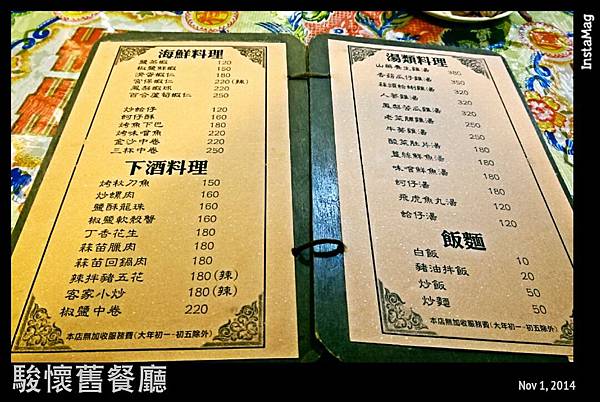 海鮮料理
鹽蒸蝦 120
椒鹽鮮蝦 150
滑蛋蝦仁 180
宮保蝦仁 220(辣)
鳳梨蝦球 220
百合蘆筍蝦仁 250
炒蛤仔 120
蚵仔酥 160
烤魚下巴 180
烤味噌魚 220
金沙中卷 220
三杯中卷 250
下酒料理
烤秋刀魚 150
炒螺肉 160
鹽酥龍珠 160
椒鹽軟殼蟹 160
丁香花生 180
蒜苗臘肉 180
蒜苗回鍋肉 180
辣拌豬五花 180(辣)
客家小炒 180(辣)
椒鹽中卷 220
本店無加收服務費(大年初一~初五除外)
湯類料理
山藥養生雞湯 350
香菇瓜仔雞湯 350
蒜頭蛤蜊雞湯 320
人蔘雞湯 320
鳳梨苦瓜雞湯 320
老菜脯雞湯 250
牛蒡雞湯 250
酸菜肚片湯 250
薑絲鮮魚湯 180
味噌鮮魚湯 180
蚵仔湯 180
飛虎魚丸湯 120
蛤仔湯 120
飯麵
白飯 10
豬油拌飯 20
炒飯 50
炒麵 50
本店無加收服務費(大年初一~初五除外)
InstaMag
駿懷舊餐廳
Nov 1, 2014